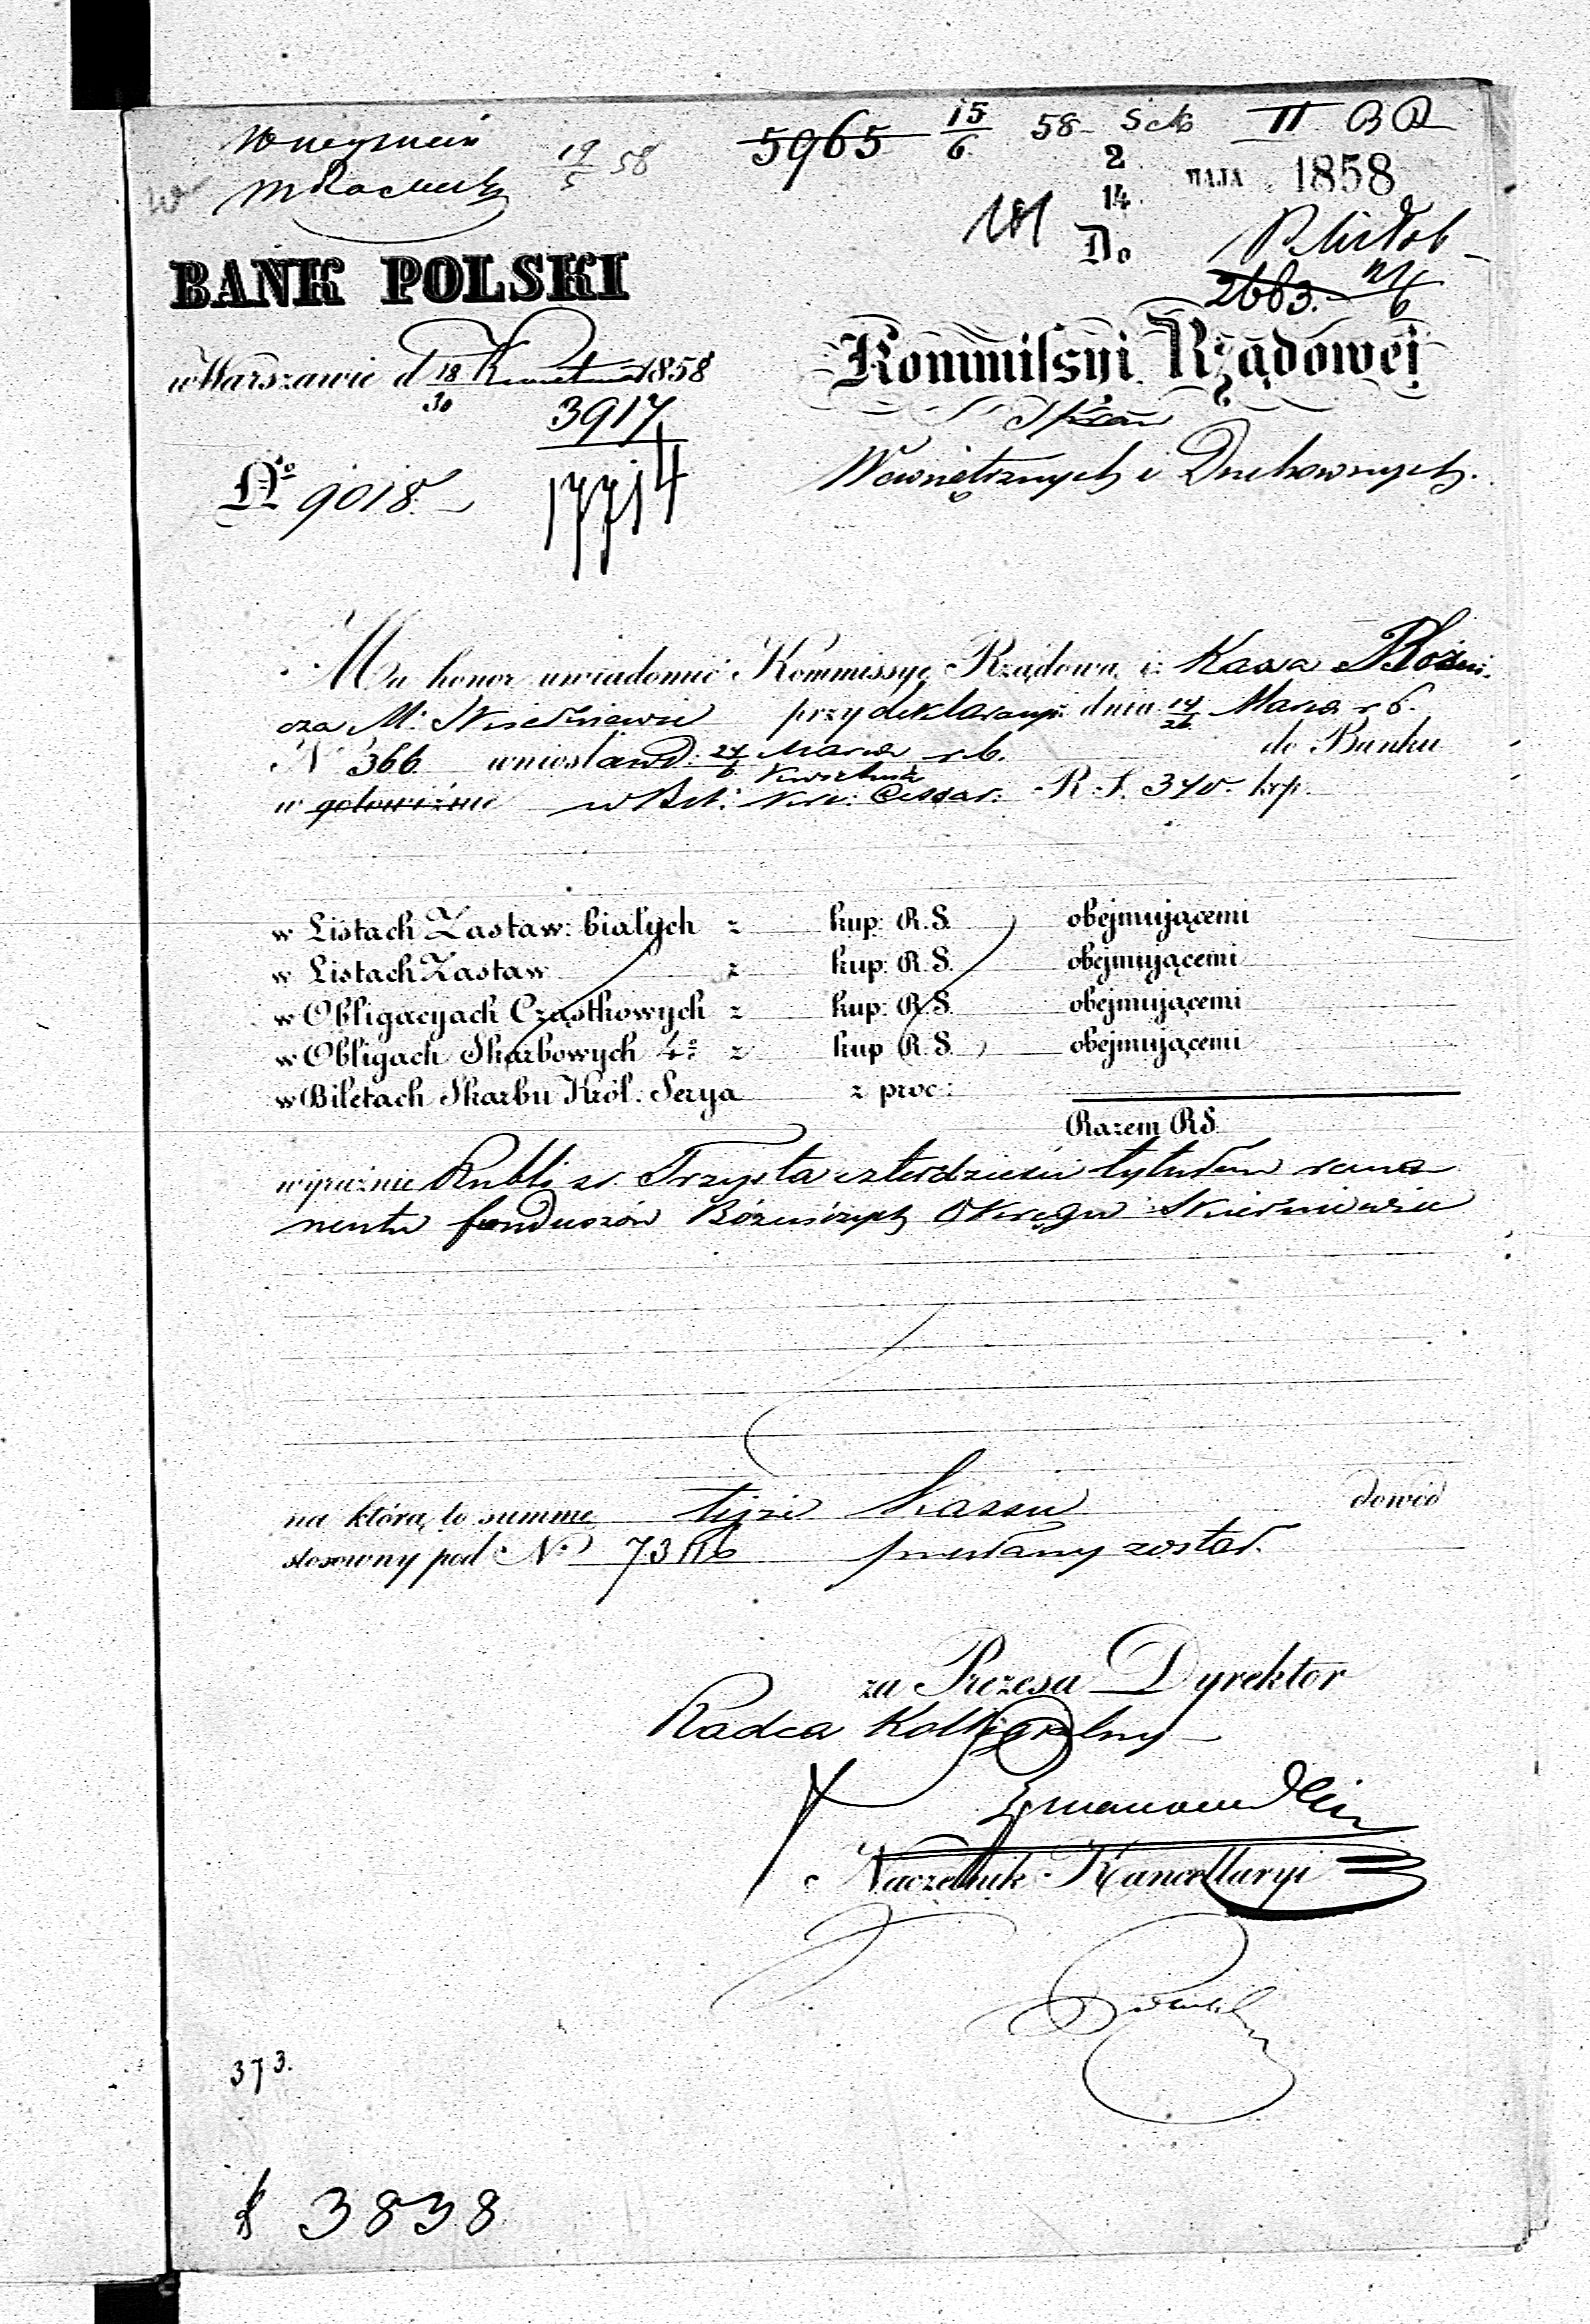 5965 15/6 58 Sek II BR
19/5 58
2/14 MAJA 1858
181 Do
2683. 21/6
BANK POLSKI
Kommissyi Rządowej
w Warszawie d 18/30 Kwietnia 1858
3917
Spraw
Wewnętrznych i Duchownych.
No 9018.
17714
Ma honor uwiadomić Kommissyę Rządową, iż Kassa Bóżni-
cza M: Skierniewic przy deklaracyi dnia 14/26 Marca r b.
N 366 wniosła w d: 27 Marca / 6 Kwietnia r. b. do Banku
w gotowiźnie w Bil: Kre: Cessar: R. S. 340 kop.
w Listach Zastaw: białych z kup: R. S. obejmującemi
w Listach Zastaw z kup: R. S. obejmującemi
w Obligacyach Cząstkowych z kup: R. S. obejmującemi
w Obligach Skarbowych 4% z kup R. S. obejmującemi
w Biletach Skarbu Król. Serya z proc:
Razem RS.
wyraźnie Rubli sr. Trzysta czterdzieści tytułem rema
nentu funduszów Bóżniczych Okręgu Skierniewic
na którą to summę tejże Kassie dowód
stosowny pod No 7386 przesłany został.
za Prezesa Dyrektor
Radca Kollegialny
Naczelnik Kancellaryi
373.
3838